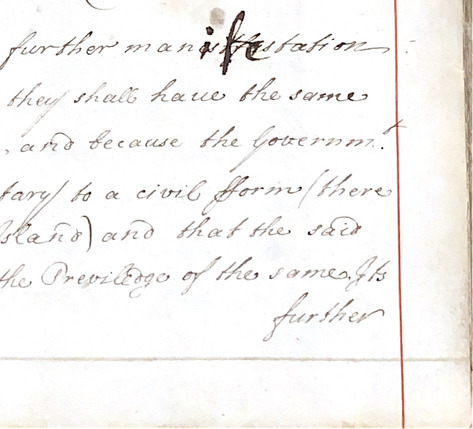 further manifestation
they shall have the same
, and because the Governm.t
tary) to a civil fform (there
Island) and that the said
the Previledge of the same, Its
further